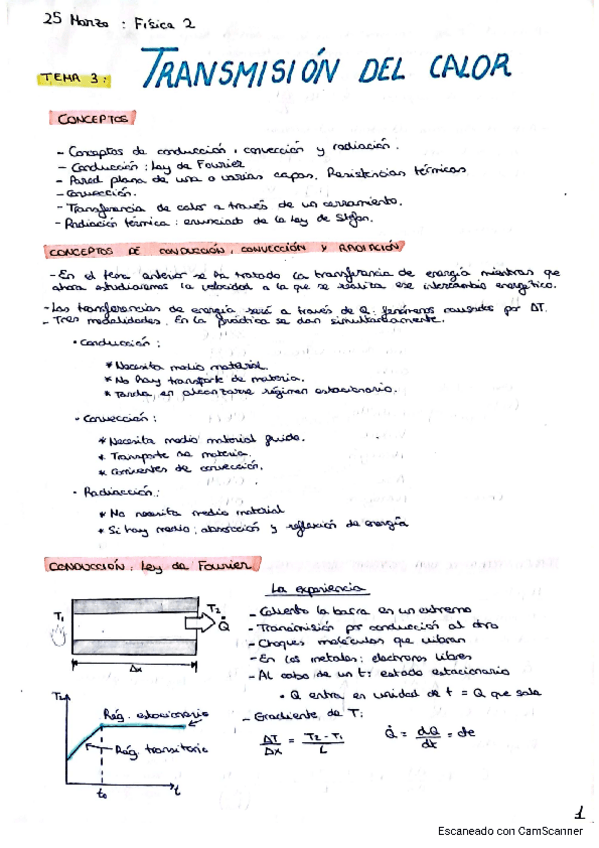 25 Marzo : Física 2
TEMA 3: TRANSMISIÓN DEL CALOR
CONCEPTOS
- Conceptos de conducción, convección y radiación.
- Conducción: Ley de Fourier
- Pared plana de una o varias capas. Resistencias térmicas
- Convección.
- Transferencia de calor a través de un cerramiento.
- Radiación térmica: enunciado de la Ley de Stefan.
CONCEPTOS DE CONDUCCIÓN, CONVECCIÓN Y RADIACIÓN
- En el tema anterior se ha tratado la transferencia de energía mientras que
ahora estudiaremos la velocidad a la que se realiza ese intercambio energético.
- Las transferencias de energía será a través de Q: fenómenos causados por ΔT.
- Tres modalidades. En la práctica se dan simultáneamente.
• Conducción:
* Necesita medio material.
* No hay transporte de materia.
* Tarda en alcanzarse régimen estacionario.
• Convección:
* Necesita medio material fluido.
* Transporte materia.
* Corrientes de convección.
• Radiación:
* No necesita medio material
* Si hay medio: absorción y reflexión de energía
CONDUCCIÓN: Ley de Fourier
La experiencia
T₁
T₂
Q̇
Δx
- Caliento la barra en un extremo
- Transmisión por conducción al otro
- Choques moléculas que vibran
- En los metales: electrones libres
- Al cabo de un t: estado estacionario
• Q entra en unidad de t = Q que sale
- Gradiente de T:
ΔT/Δx = T₂ - T₁/L
Q̇ = dQ/dt = cte
T
Rég. estacionario
Rég. transitorio
t₀
t
1
Escaneado con CamScanner